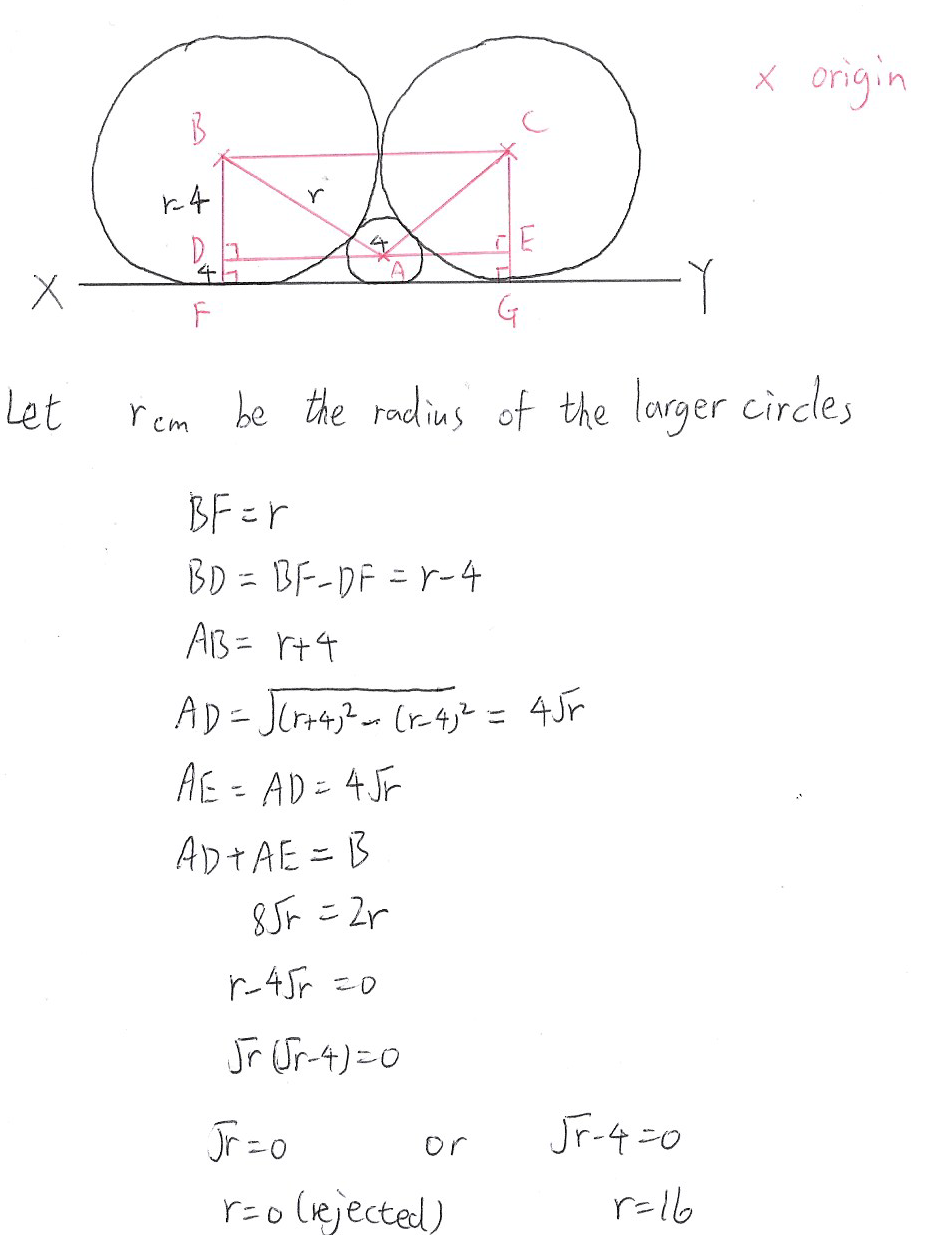 x origin
B
C
r-4
r
D
4
E
4
A
X
Y
F
G
Let r cm be the radius of the larger circles
BF=r
BD = BF-DF = r-4
AB= r+4
AD = √(r+4)² - (r-4)² = 4√r
AE = AD = 4√r
AD+AE = B
8√r = 2r
r-4√r =0
√r (√r-4)=0
√r=0 or √r-4=0
r=0 (rejected) r=16